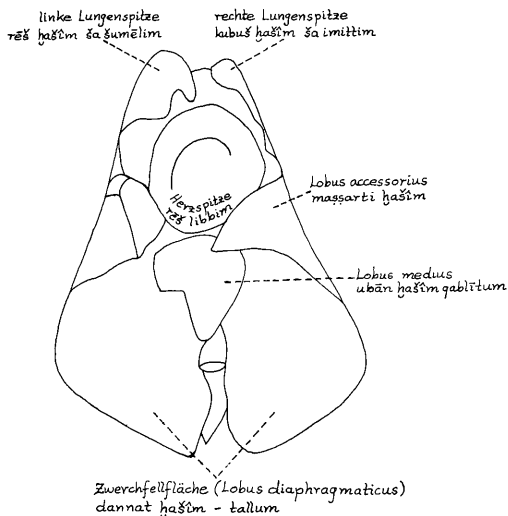 linke Lungenspitze
rēš ḫašîm ša šumēlim
rechte Lungenspitze
kubuš ḫašîm ša imittim
Herzspitze
rēš libbim
Lobus accessorius
maṣṣarti ḫašîm
Lobus medius
ubān ḫašîm qablītum
Zwerchfellfläche (Lobus diaphragmaticus)
dannat ḫašîm - tallum